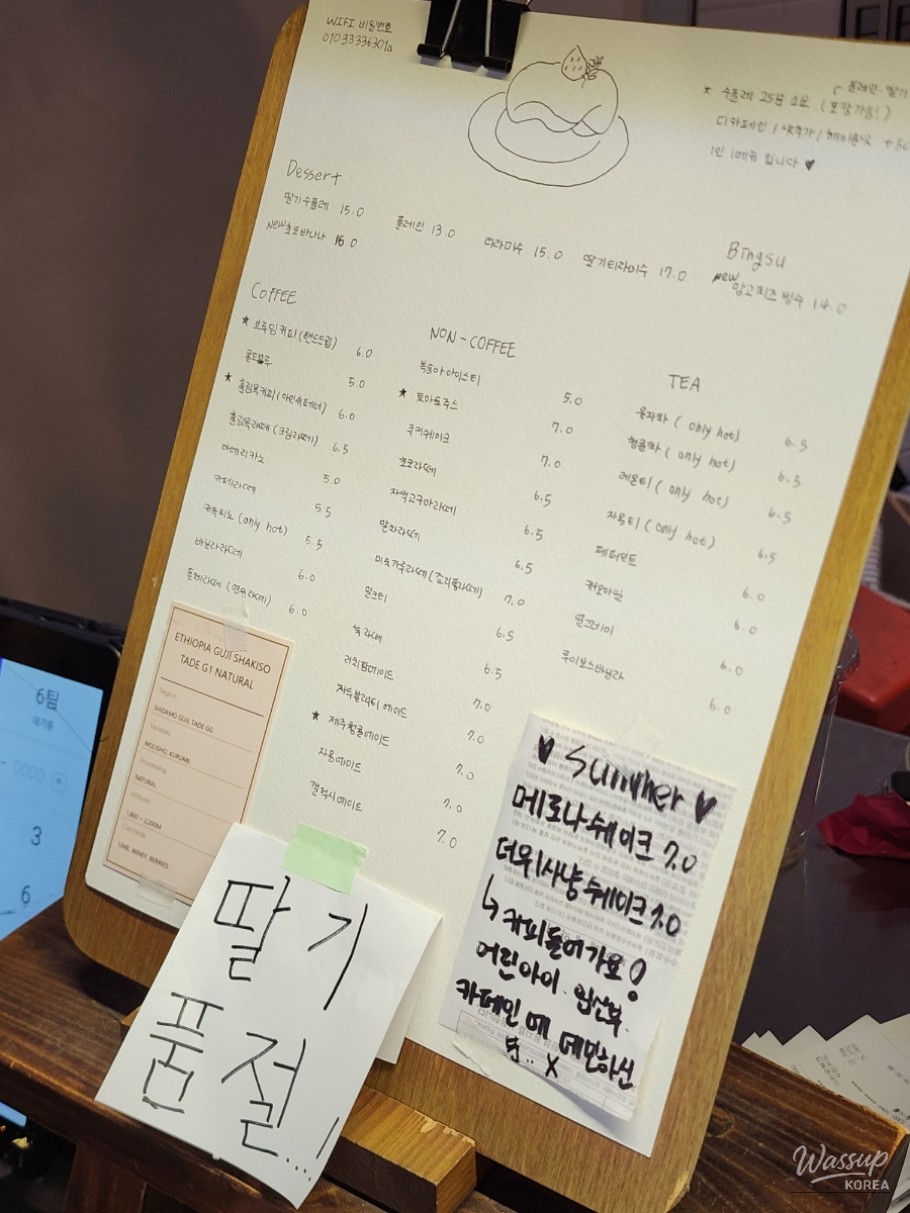 WIFI 비밀번호
01033336301a
플레인·딸기
★ 수플레 25분 소요 (포장가능!)
디카페인 / 샷추가 / 헤이즐넛 +50
1인 1메뉴 입니다 ♥
Dessert
딸기수플레 15.0
플레인 13.0
티라미수 15.0
딸기티라미수 17.0
NEW 초코바나나 16.0
Bingsu
NEW 망고치즈 빙수 14.0
COFFEE
★ 브루잉 커피 (핸드드립) 6.0
콜드브루 5.0
★ 흘림목커피 (아인슈페너) 6.0
흘림목라떼 (크림라떼) 6.5
아메리카노 5.0
카페라떼 5.5
카푸치노 (only hot) 5.5
바닐라라떼 6.0
돌체라떼 (연유라떼) 6.0
NON-COFFEE
복숭아아이스티 5.0
★ 토마토쥬스 7.0
쿠키쉐이크 7.0
초코라떼 6.5
자색고구마라떼 6.5
말차라떼 6.5
미숫가루라떼 7.0
밀크티 6.5
쑥라떼 6.5
리치팝에이드 7.0
자두블랙티 에이드 7.0
★ 제주청귤에이드 7.0
자몽에이드 7.0
갤럭시에이드 7.0
TEA
유자차 (only hot) 6.5
청귤차 (only hot) 6.5
레몬티 (only hot) 6.5
자몽티 (only hot) 6.5
페퍼민트 6.0
캐모마일 6.0
얼그레이 6.0
루이보스바닐라 6.0
ETHIOPIA GUJI SHAKISO
TADE G1 NATURAL
Region
SHIDAMO GUJI, TADE GG
Varieties
Processing
NATURAL
Altitude
1,800 - 2,200M
Cup Note
LIME, WINEY, BERRIES
♥ Summer ♥
메로나쉐이크 7.0
더위사냥쉐이크 7.0
↳ 커피들어가요!
어린아이·임산부·
카페인에 예민하신
분.. X
딸기
품절...!
6팀
대기중
3
6
Wassup
KOREA